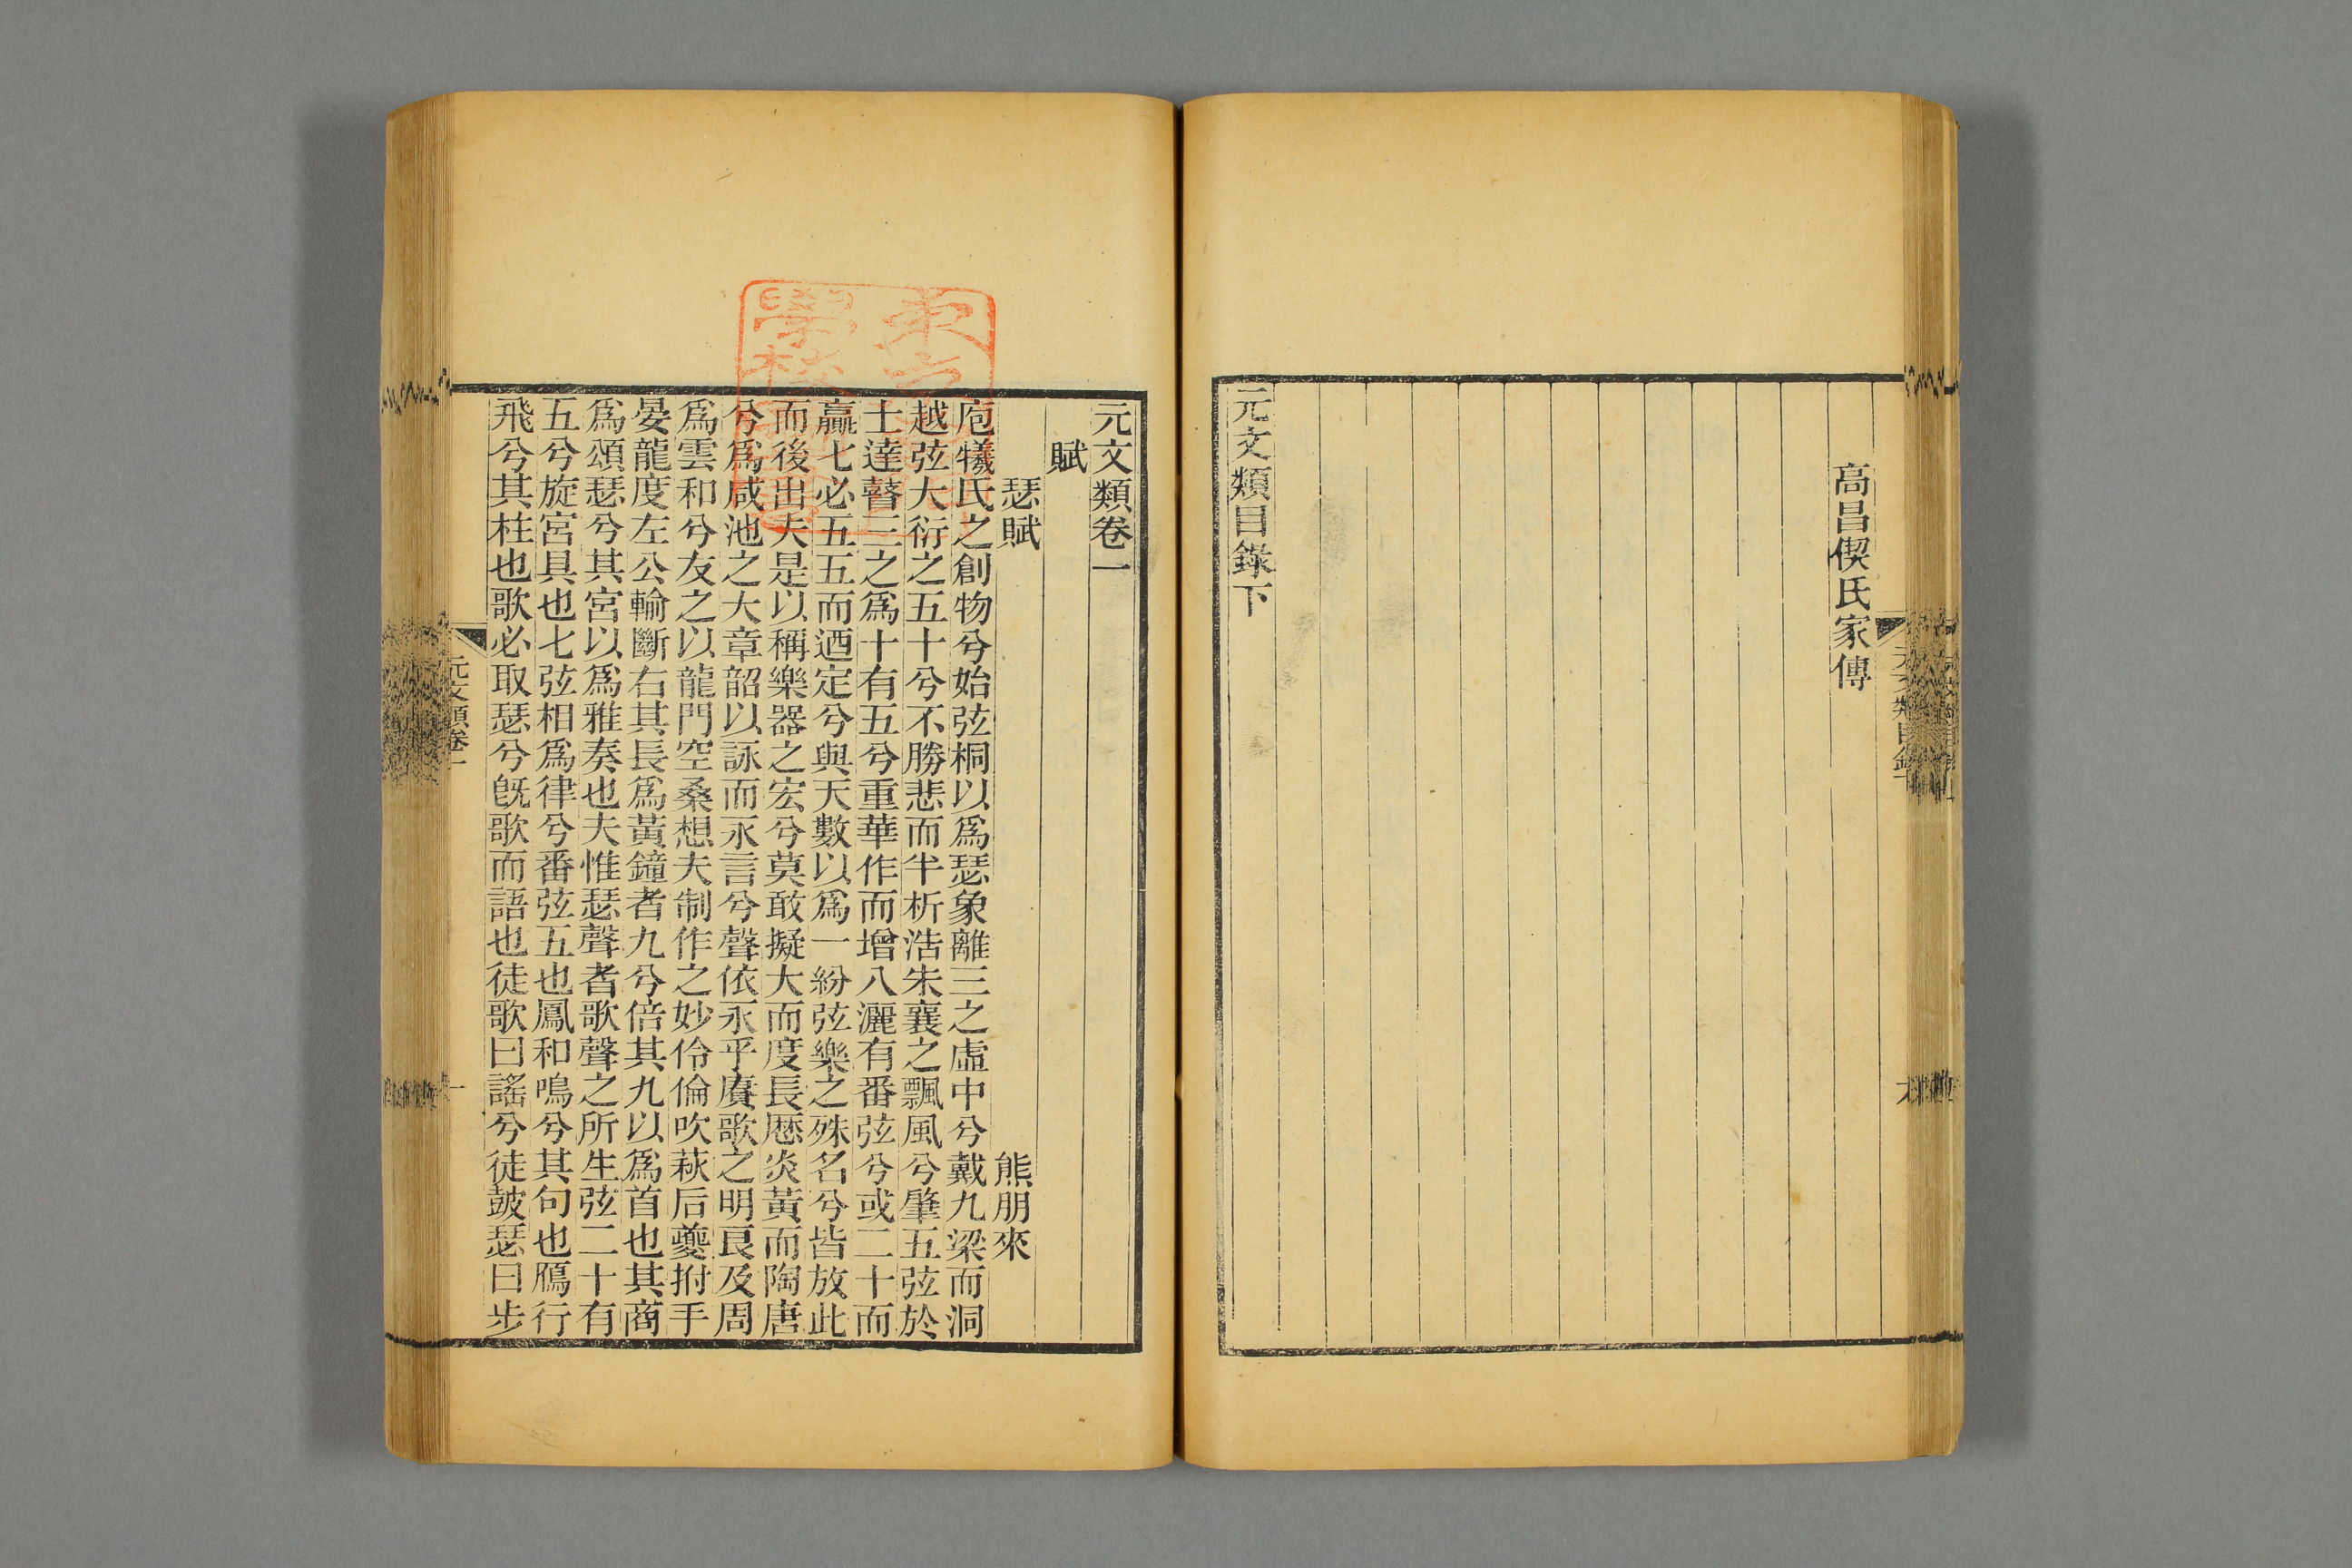 高昌偰氏家傳
元文類目錄下
元文類卷一
賦
瑟賦
熊朋來
庖犧氏之創物兮始弦桐以爲瑟象離三之虛中兮戴九梁而洞
越弦大衍之五十兮不勝悲而半析浩朱襄之飄風兮肇五弦於
士達瞽三之爲十有五兮重華作而增八灑有番弦兮或二十而
贏七必五五而迺定兮與天數以爲一紛弦樂之殊名兮皆放此
而後出夫是以稱樂器之宏兮莫敢擬大而度長歷炎黃而陶唐
兮爲咸池之大章韶以詠而永言兮聲依永乎賡歌之明良及周
爲雲和兮友之以龍門空桑想夫制作之妙伶倫吹萩后夔拊手
晏龍度左公輸斷右其長爲黃鐘者九兮倍其九以爲首也其商
爲頌瑟兮其宮以爲雅奏也夫惟瑟聲者歌聲之所生弦二十有
五兮旋宮具也七弦相爲律兮番弦五也鳳和鳴兮其句也鴈行
飛兮其柱也歌必取瑟兮旣歌而語也徒歌曰謠兮徒皷瑟曰步
元文類卷一
一